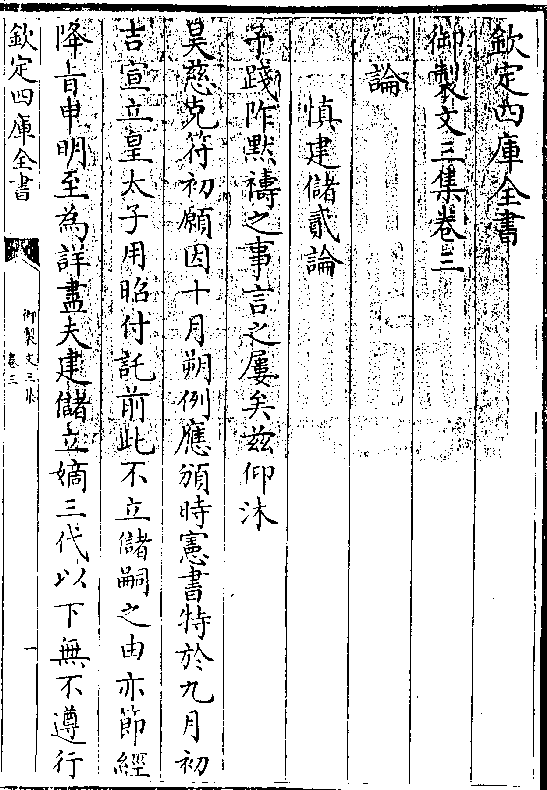 欽定四庫全書
御製文三集卷三
論
慎建儲貳論
予踐阼默禱之事言之屢矣茲仰沐
昊慈克符初願因十月朔例應頒時憲書特於九月初
吉宣立皇太子用昭付託前此不立儲嗣之由亦節經
降旨申明至為詳盡夫建儲立嫡三代以下無不遵行
欽定四庫全書
御製文三集
卷三
一